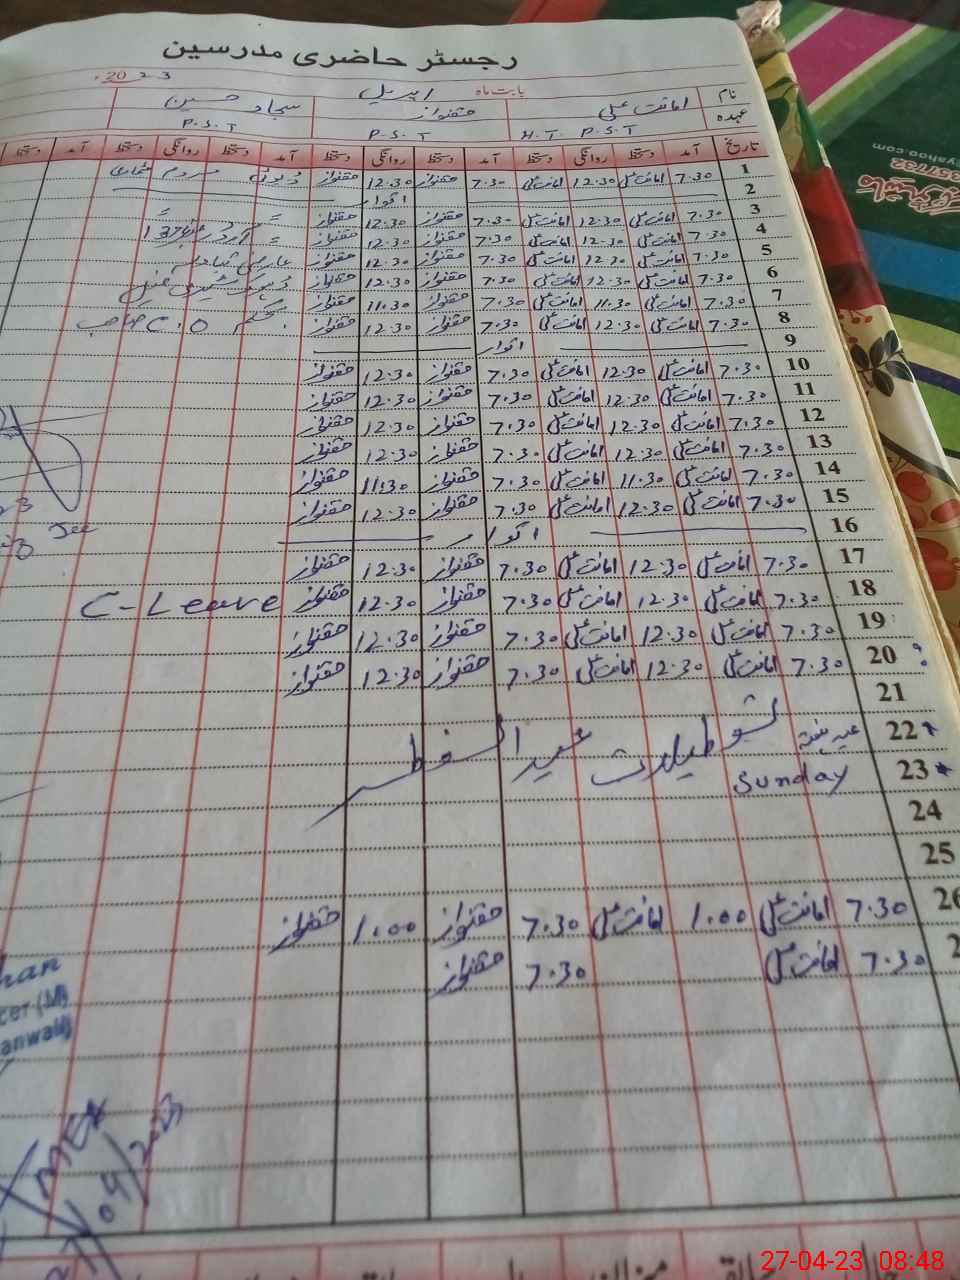 رجسٹر حاضری مدرسین
بابت ماہ اپریل 2023ء
نام امانت علی حقنواز سجاد حسین
عہدہ H.T. P.S.T P.S.T P.S.T
تاریخ آمد دستخط روانگی دستخط آمد دستخط روانگی دستخط آمد دستخط روانگی دستخط آمد دستخط
1 7.30 امانت علی 12.30 امانت علی 7.30 حقنواز 12.30 حقنواز ڈیوٹی مردم شماری
2 اتوار
3 7.30 امانت علی 12.30 امانت علی 7.30 حقنواز 12.30 حقنواز
4 7.30 امانت علی 12.30 امانت علی 7.30 حقنواز 12.30 حقنواز
5 7.30 امانت علی 12.30 امانت علی 7.30 حقنواز 12.30 حقنواز
6 7.30 امانت علی 12.30 امانت علی 7.30 حقنواز 12.30 حقنواز
7 7.30 امانت علی 11.30 امانت علی 7.30 حقنواز 11.30 حقنواز
8 7.30 امانت علی 12.30 امانت علی 7.30 حقنواز 12.30 حقنواز بحکم C.O صاحب
9 اتوار
10 7.30 امانت علی 12.30 امانت علی 7.30 حقنواز 12.30 حقنواز
11 7.30 امانت علی 12.30 امانت علی 7.30 حقنواز 12.30 حقنواز
12 7.30 امانت علی 12.30 امانت علی 7.30 حقنواز 12.30 حقنواز
13 7.30 امانت علی 12.30 امانت علی 7.30 حقنواز 12.30 حقنواز
14 7.30 امانت علی 11.30 امانت علی 7.30 حقنواز 11.30 حقنواز
15 7.30 امانت علی 12.30 امانت علی 7.30 حقنواز 12.30 حقنواز
16 اتوار
17 7.30 امانت علی 12.30 امانت علی 7.30 حقنواز 12.30 حقنواز
18 7.30 امانت علی 12.30 امانت علی 7.30 حقنواز 12.30 حقنواز C-Leave
19 7.30 امانت علی 12.30 امانت علی 7.30 حقنواز 12.30 حقنواز
20 7.30 امانت علی 12.30 امانت علی 7.30 حقنواز 12.30 حقنواز
21
22 عید ہفتہ تعطیلات عید الفطر
23 Sunday
24
25
26 7.30 امانت علی 1.00 امانت علی 7.30 حقنواز 1.00 حقنواز
2 7.30 امانت علی 7.30 حقنواز
han
cer (M)
anwali
MEA
/04/2023
yahoo.com
357732
27-04-23 08:48